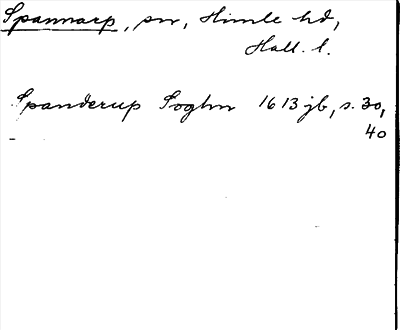 Spannarp, sn, Himle hd,
Hall. l.
Spanderup Soghn 1613 jb, s. 30,
40